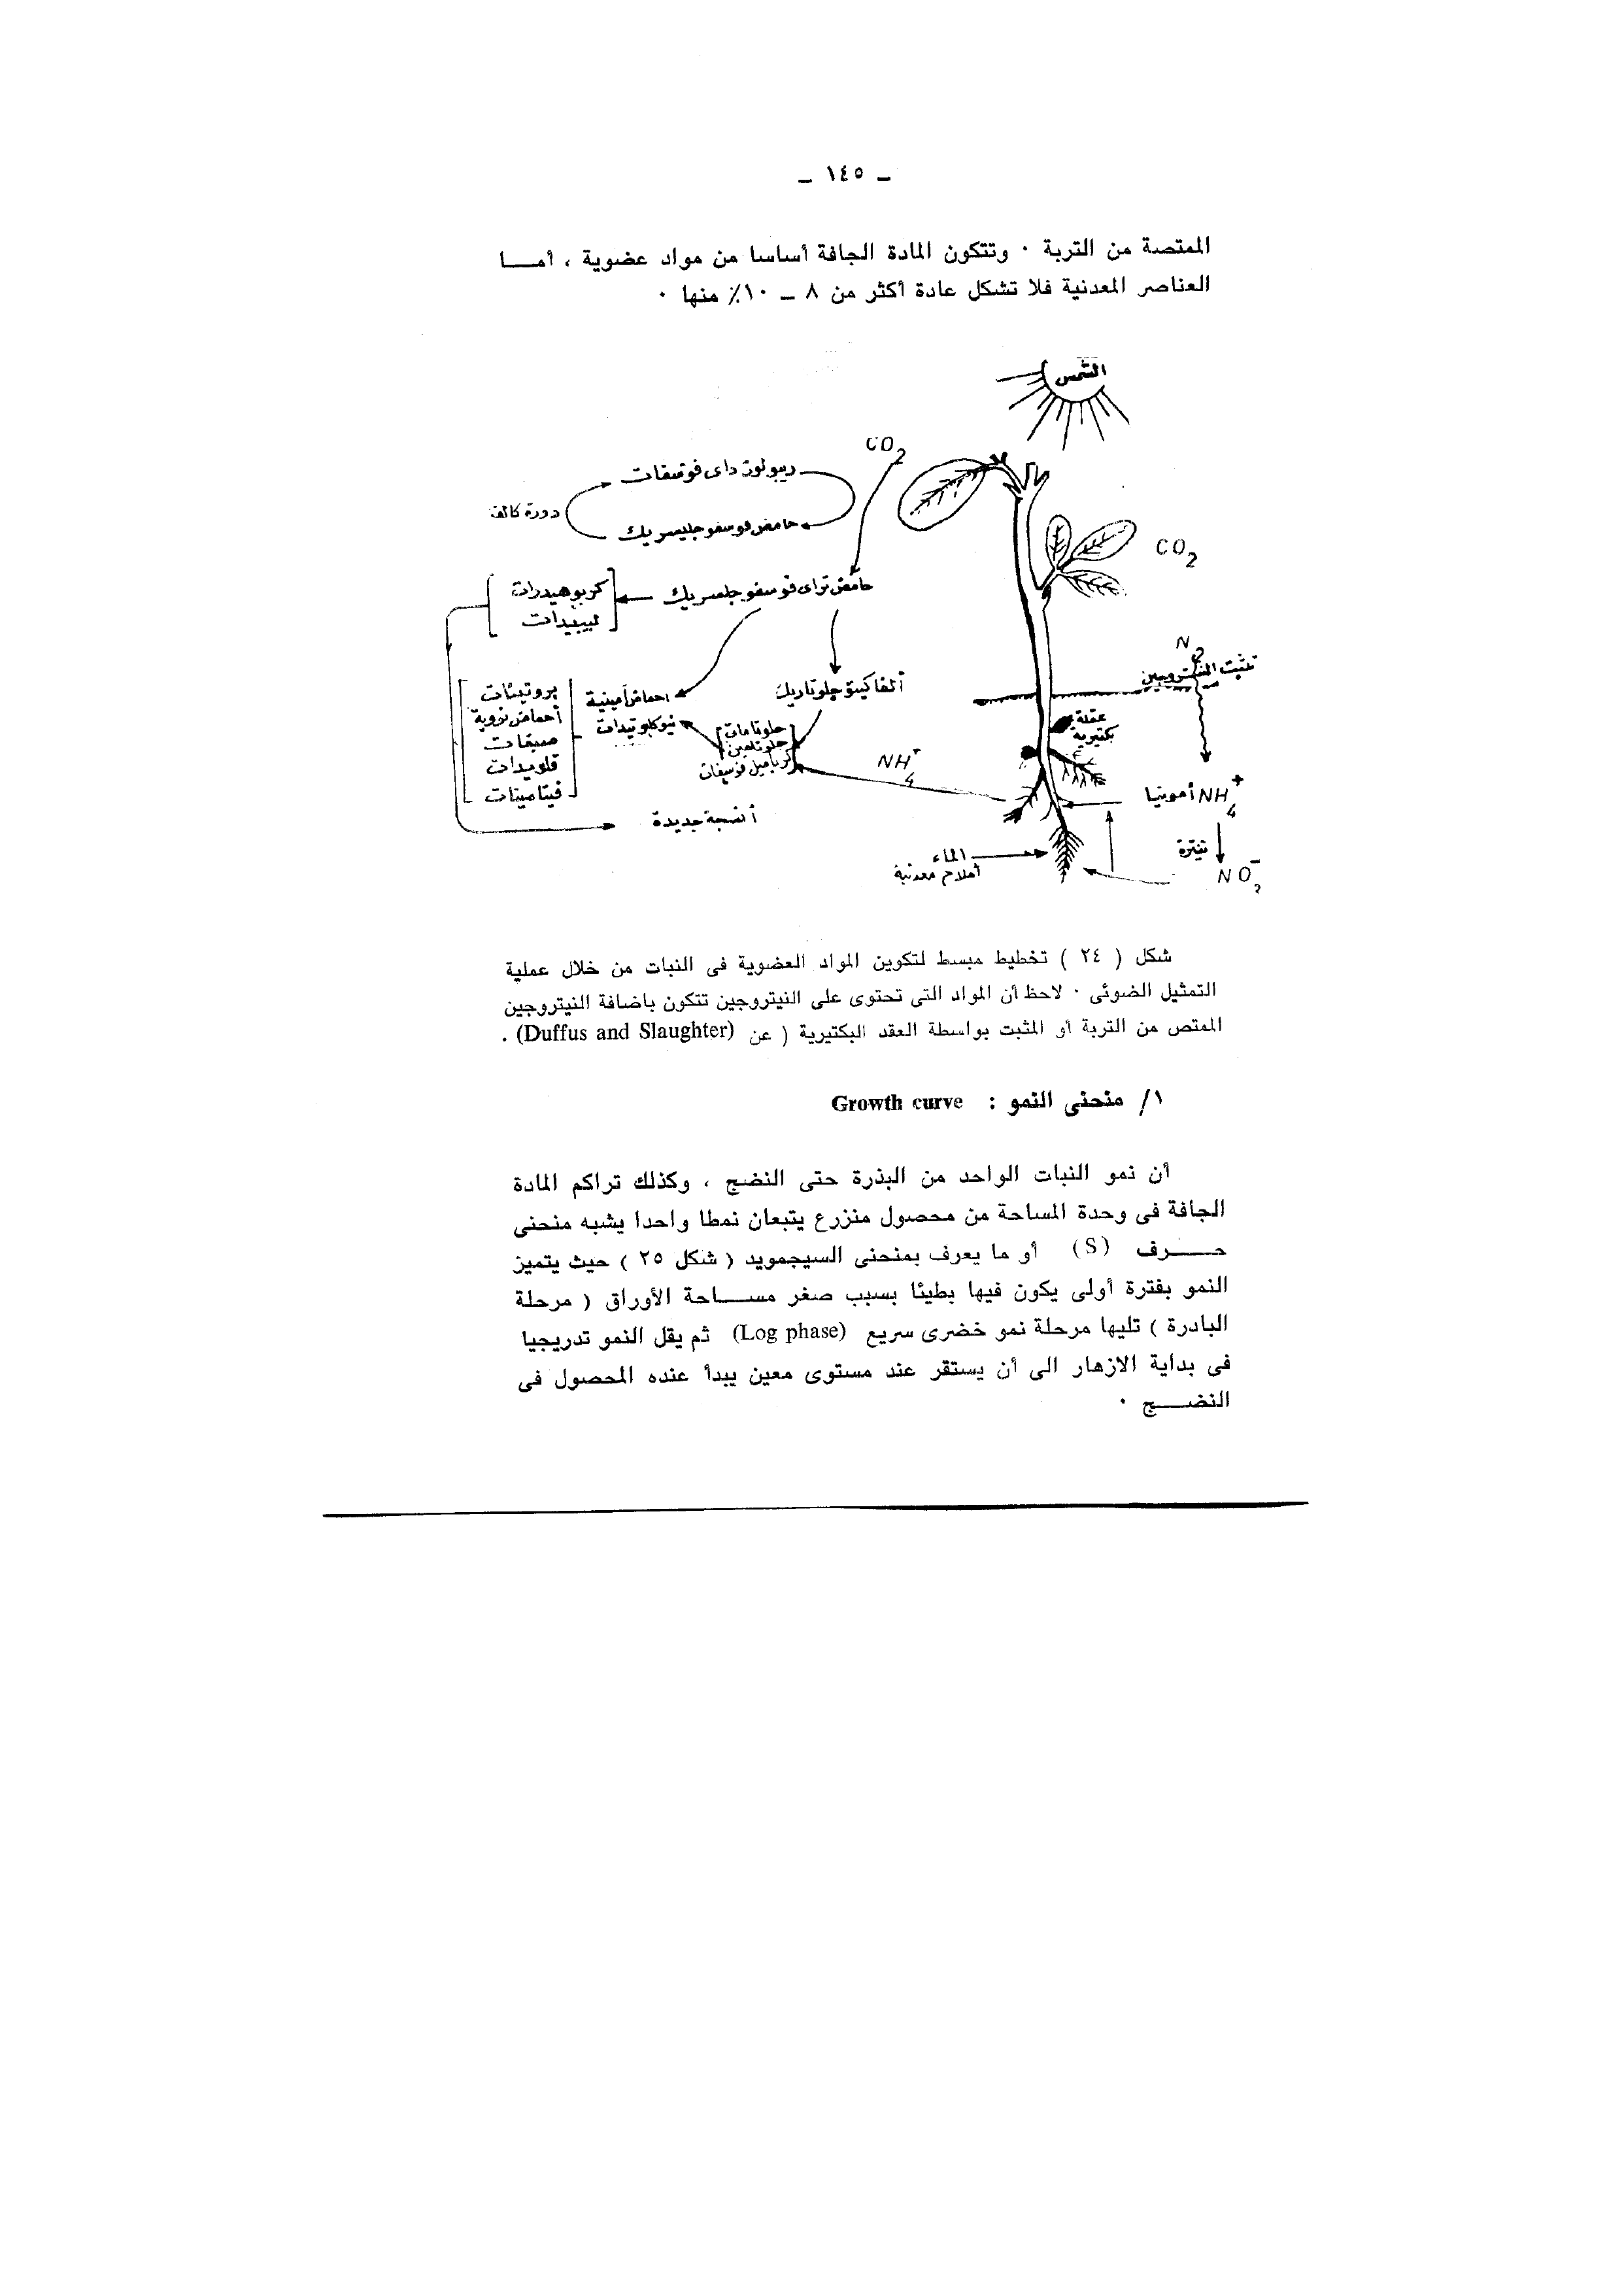 ـ ١٤٥ ـ
الممتصة من التربة ٠ وتتكون المادة الجافة أساسا من مواد عضوية ، أمـــا
العناصر المعدنية فلا تشكل عادة أكثر من ٨ ــ ١٠٪ منها ٠
الشمس
CO2
ريبولوز داى فوسفات
دورة كالف
حامض فوسفو جليسريك
CO2
حامض تراى فوسفو جلسريك
كربوهيدرات
ليبيدات
N2
تثبت النتروجين
ألفا كيتو جلوتاريك
احماض أمينية
نيوكلوتيدات
بروتينات
أحماض نووية
صبغات
قلويدات
فيتامينات
جلوتامات
جلوتامين
كرباميل فوسفات
عقلة
بكتيرية
NH4+
أمونيا NH4+
أنسجة جديدة
نترة
الماء
أملاح معدنية
NO3-
شكل ( ٢٤ ) تخطيط مبسط لتكوين المواد العضوية فى النبات من خلال عملية
التمثيل الضوئى ٠ لاحظ أن المواد التى تحتوى على النيتروجين تتكون باضافة النيتروجين
الممتص من التربة أو المثبت بواسطة العقد البكتيرية ( عن (Duffus and Slaughter) .
١/ منحنى النمو : Growth curve
أن نمو النبات الواحد من البذرة حتى النضج ، وكذلك تراكم المادة
الجافة فى وحدة المساحة من محصول منزرع يتبعان نمطا واحدا يشبه منحنى
حـــرف (S) أو ما يعرف بمنحنى السيجمويد ( شكل ٢٥ ) حيث يتميز
النمو بفترة أولى يكون فيها بطيئا بسبب صغر مســـاحة الأوراق ( مرحلة
البادرة ) تليها مرحلة نمو خضرى سريع (Log phase) ثم يقل النمو تدريجيا
فى بداية الازهار الى أن يستقر عند مستوى معين يبدأ عنده المحصول فى
النضـــج ٠